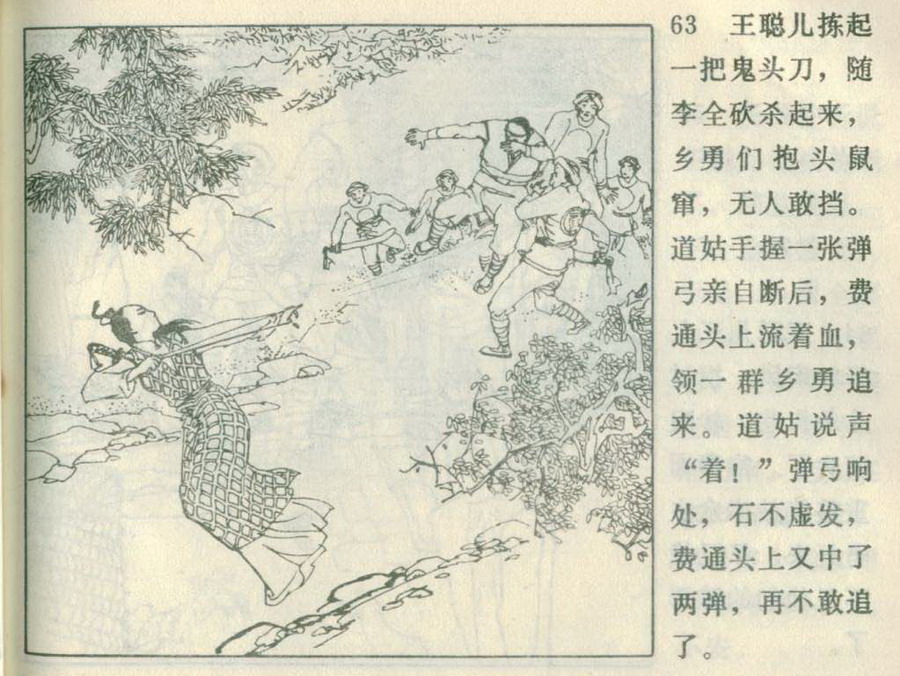 63 王聪儿拣起
一把鬼头刀，随
李全砍杀起来，
乡勇们抱头鼠
窜，无人敢挡。
道姑手握一张弹
弓亲自断后，费
通头上流着血，
领一群乡勇追
来。道姑说声
“着！”弹弓响
处，石不虚发，
费通头上又中了
两弹，再不敢追
了。